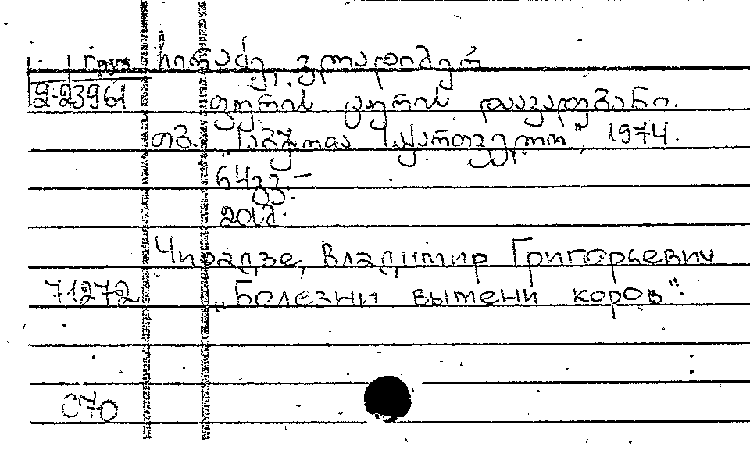 Груз. ჩირაძე, ვლადიმერ
2-23961 ფურის ცურის დაავადებანი.
თბ. "საბჭოთა საქართველო", 1974.
64 გვ.
Чирадзе, Владимир Григорьевич
71272 "Болезни вымени коров".
070